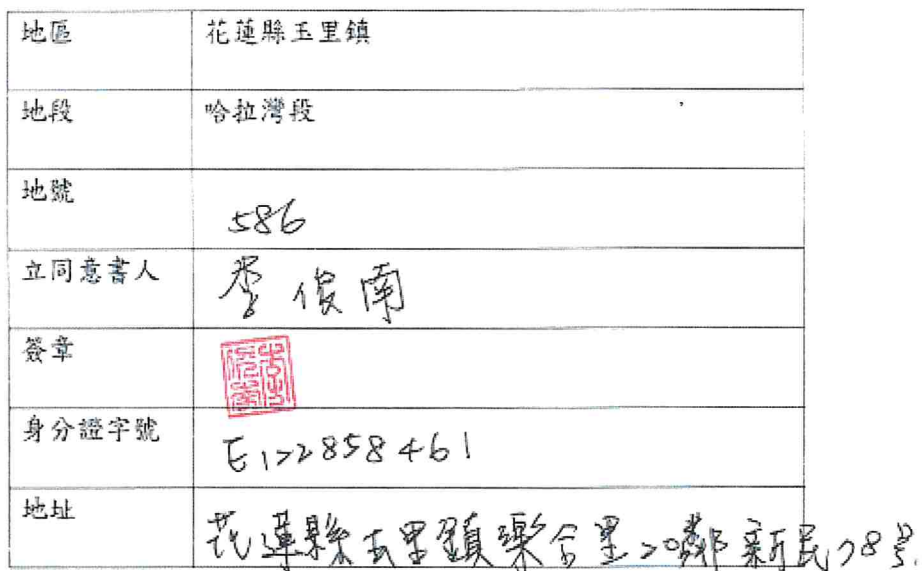 地區 花蓮縣玉里鎮
地段 哈拉灣段
地號 586
立同意書人 李俊南
簽章
身分證字號 E122858461
地址 花蓮縣玉里鎮樂合里20鄰新民28號